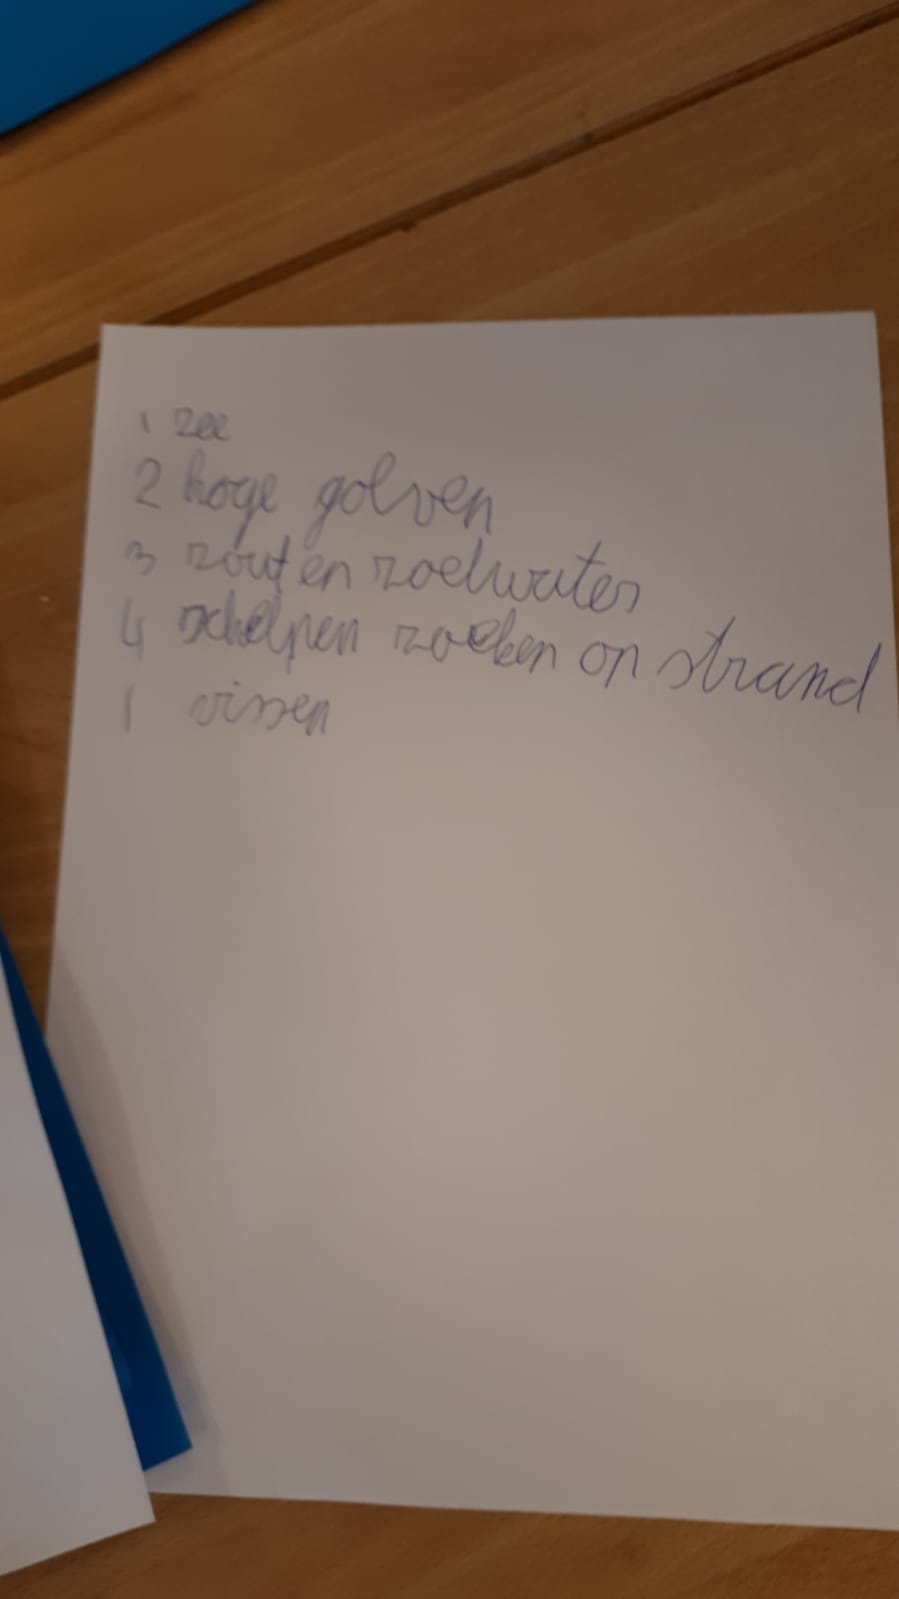 1 zee
2 hoge golven
3 zout en zoetwater
4 schelpen zoeken op strand
1 vissen